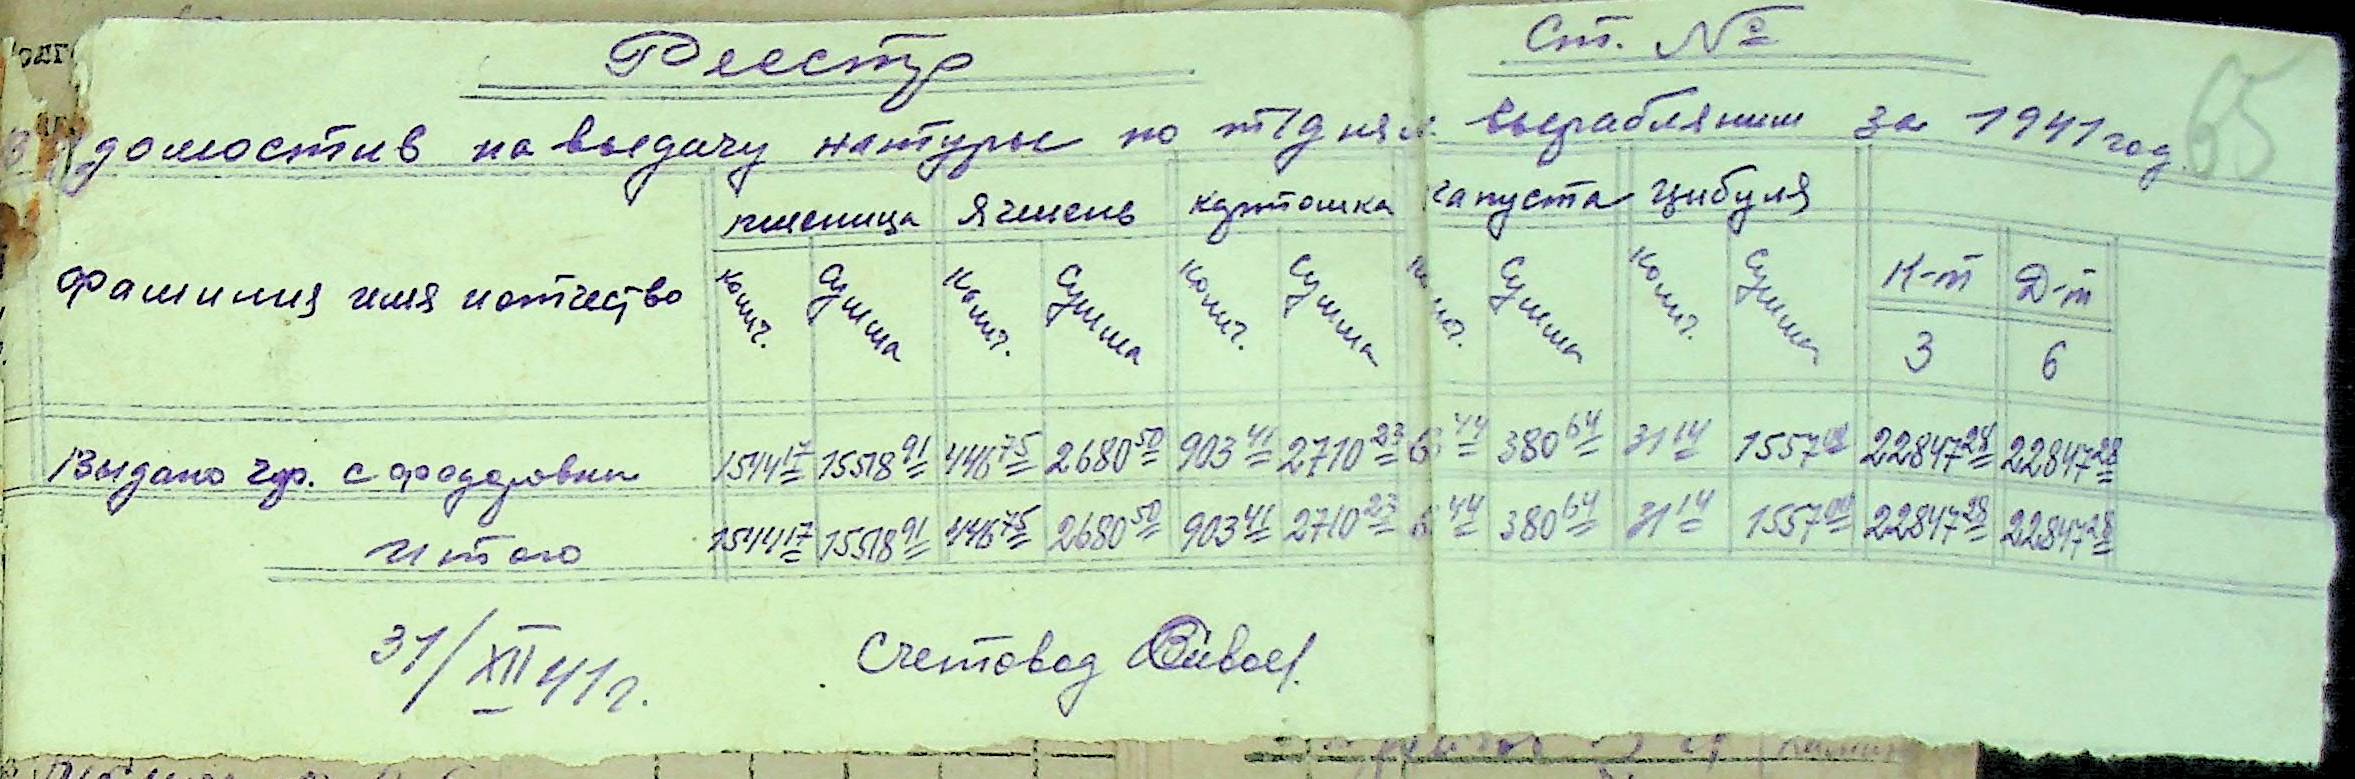 Реестр Ст. №
Ведомостив на выдачу натуры по т/дням вырабляним за 1941 год. 65
Фамилия имя и отчество пшеница Ячмень картошка капуста цибуля
Колич. Сумма Колич. Сумма Колич. Сумма Колич. Сумма Колич. Сумма К-т Д-т
3 6
Выдано гр. с Федоровки 1544 17 15518 91 446 75 2680 50 903 41 2710 23 63 44 380 64 31 14 1557 00 22847 28 22847 28
Итого 1544 17 15518 91 446 75 2680 50 903 41 2710 23 63 44 380 64 31 14 1557 00 22847 28 22847 28
31/XII 41 г. Счетовод